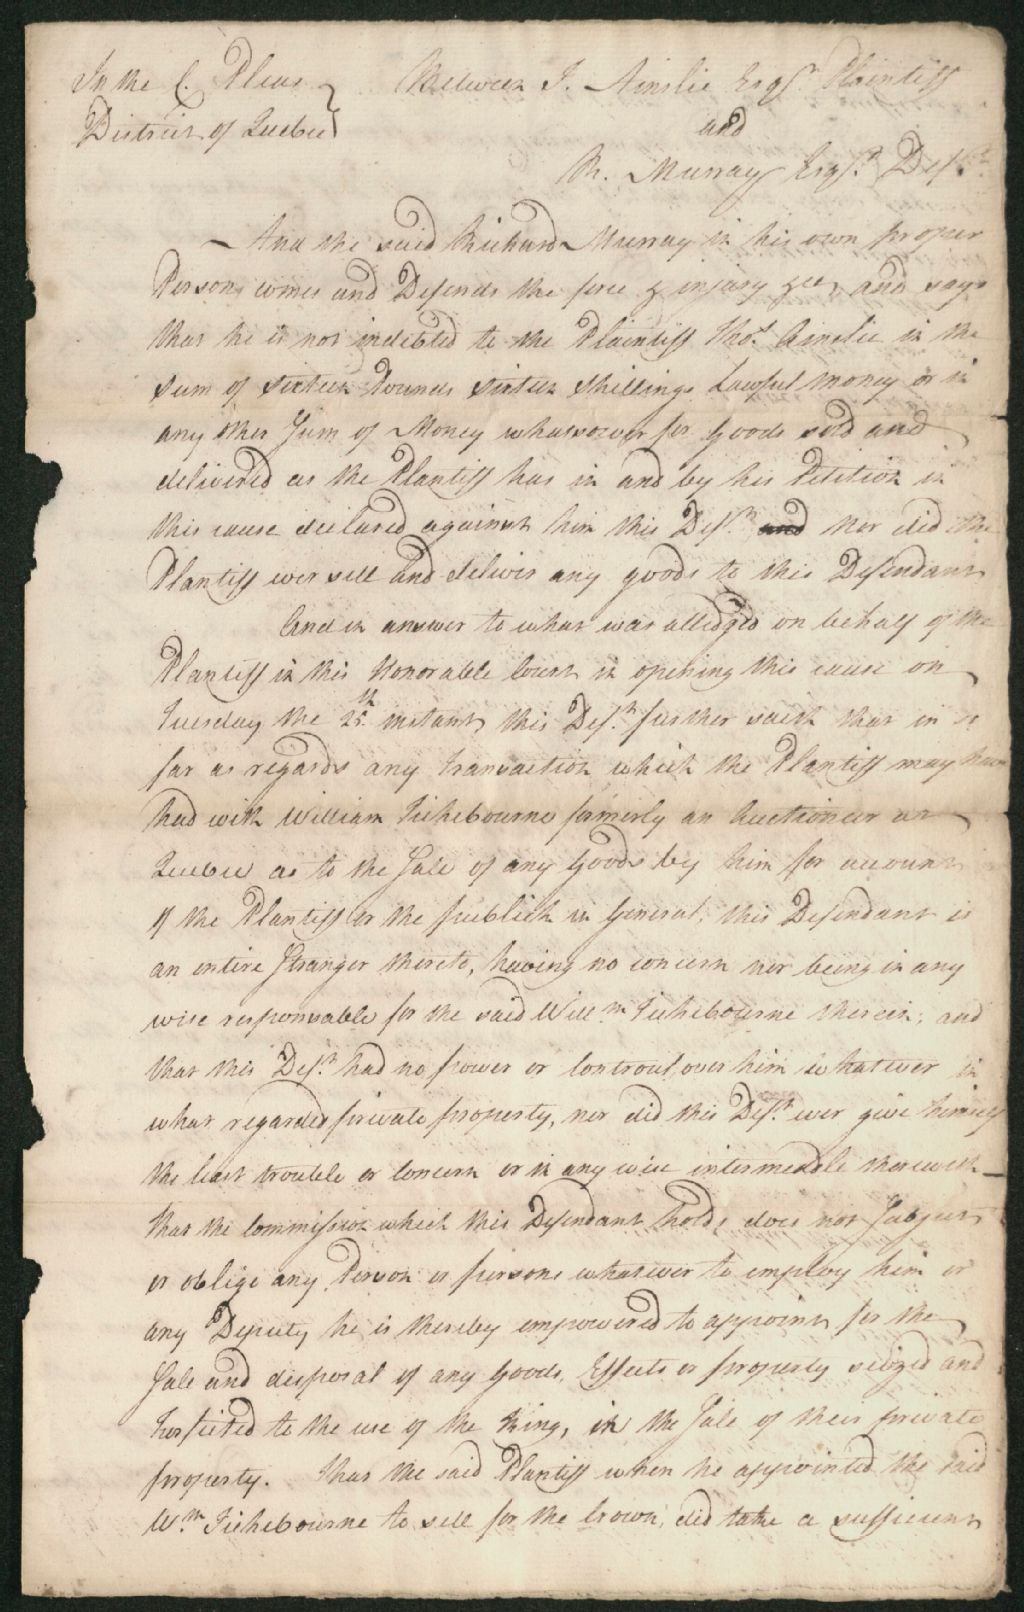 In the C. Pleas } Between T. Ainslie Esqr. Plaintiff
District of Quebec } and
R. Murray Esqr. Deft.
And the said Richard Murray in his own proper
Person comes and Defends the force & injury &ca and says
that he is not indebted to the Plaintiff Thos. Ainslie in the
sum of sixteen Pounds sixteen shillings Lawful money or in
any other Sum of Money whatsoever for Goods sold and
delivered as the Plantiff has in and by his Petition in
this cause declared against him this Deft. and nor did the
Plantiff ever sell and deliver any goods to this Defendant
And in answer to what was alledged on behalf of the
Plantiff in this Honorable Court in opening this cause on
Tuesday the 25th. instant this Deft. further saith that in so
far as regards any transaction which the Plantiff may have
had with William Tichebourne formerly an Auctioneer at
Quebec as to the Sale of any Goods by him for account
of the Plantiff or the publick in General, this Defendant is
an entire Stranger thereto, having no concern nor being in any
wise responsable for the said Willm. Tichebourne therein; and
that this Deft. had no power or Controul over him whatever in
what regarded private property, nor did this Deft. ever give himself
the least trouble or Concern or in any wise intermeddle therewith
that the Commission which this Defendant holds does not Subject
or oblige any Person or persons whatever to employ him or
any Deputy he is thereby empowered to appoint for the
Sale and disposal of any Goods, Effects or property seized and
forfeited to the use of the King, in the Sale of their private
property. That the said Plantiff when he appointed the said
Wm. Tichebourne to sell for the Crown, did take a sufficient